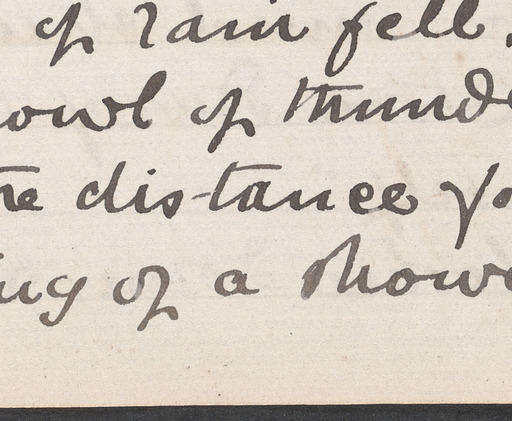 of rain fell.
owl of thunde
he distance yo
ing of a showe